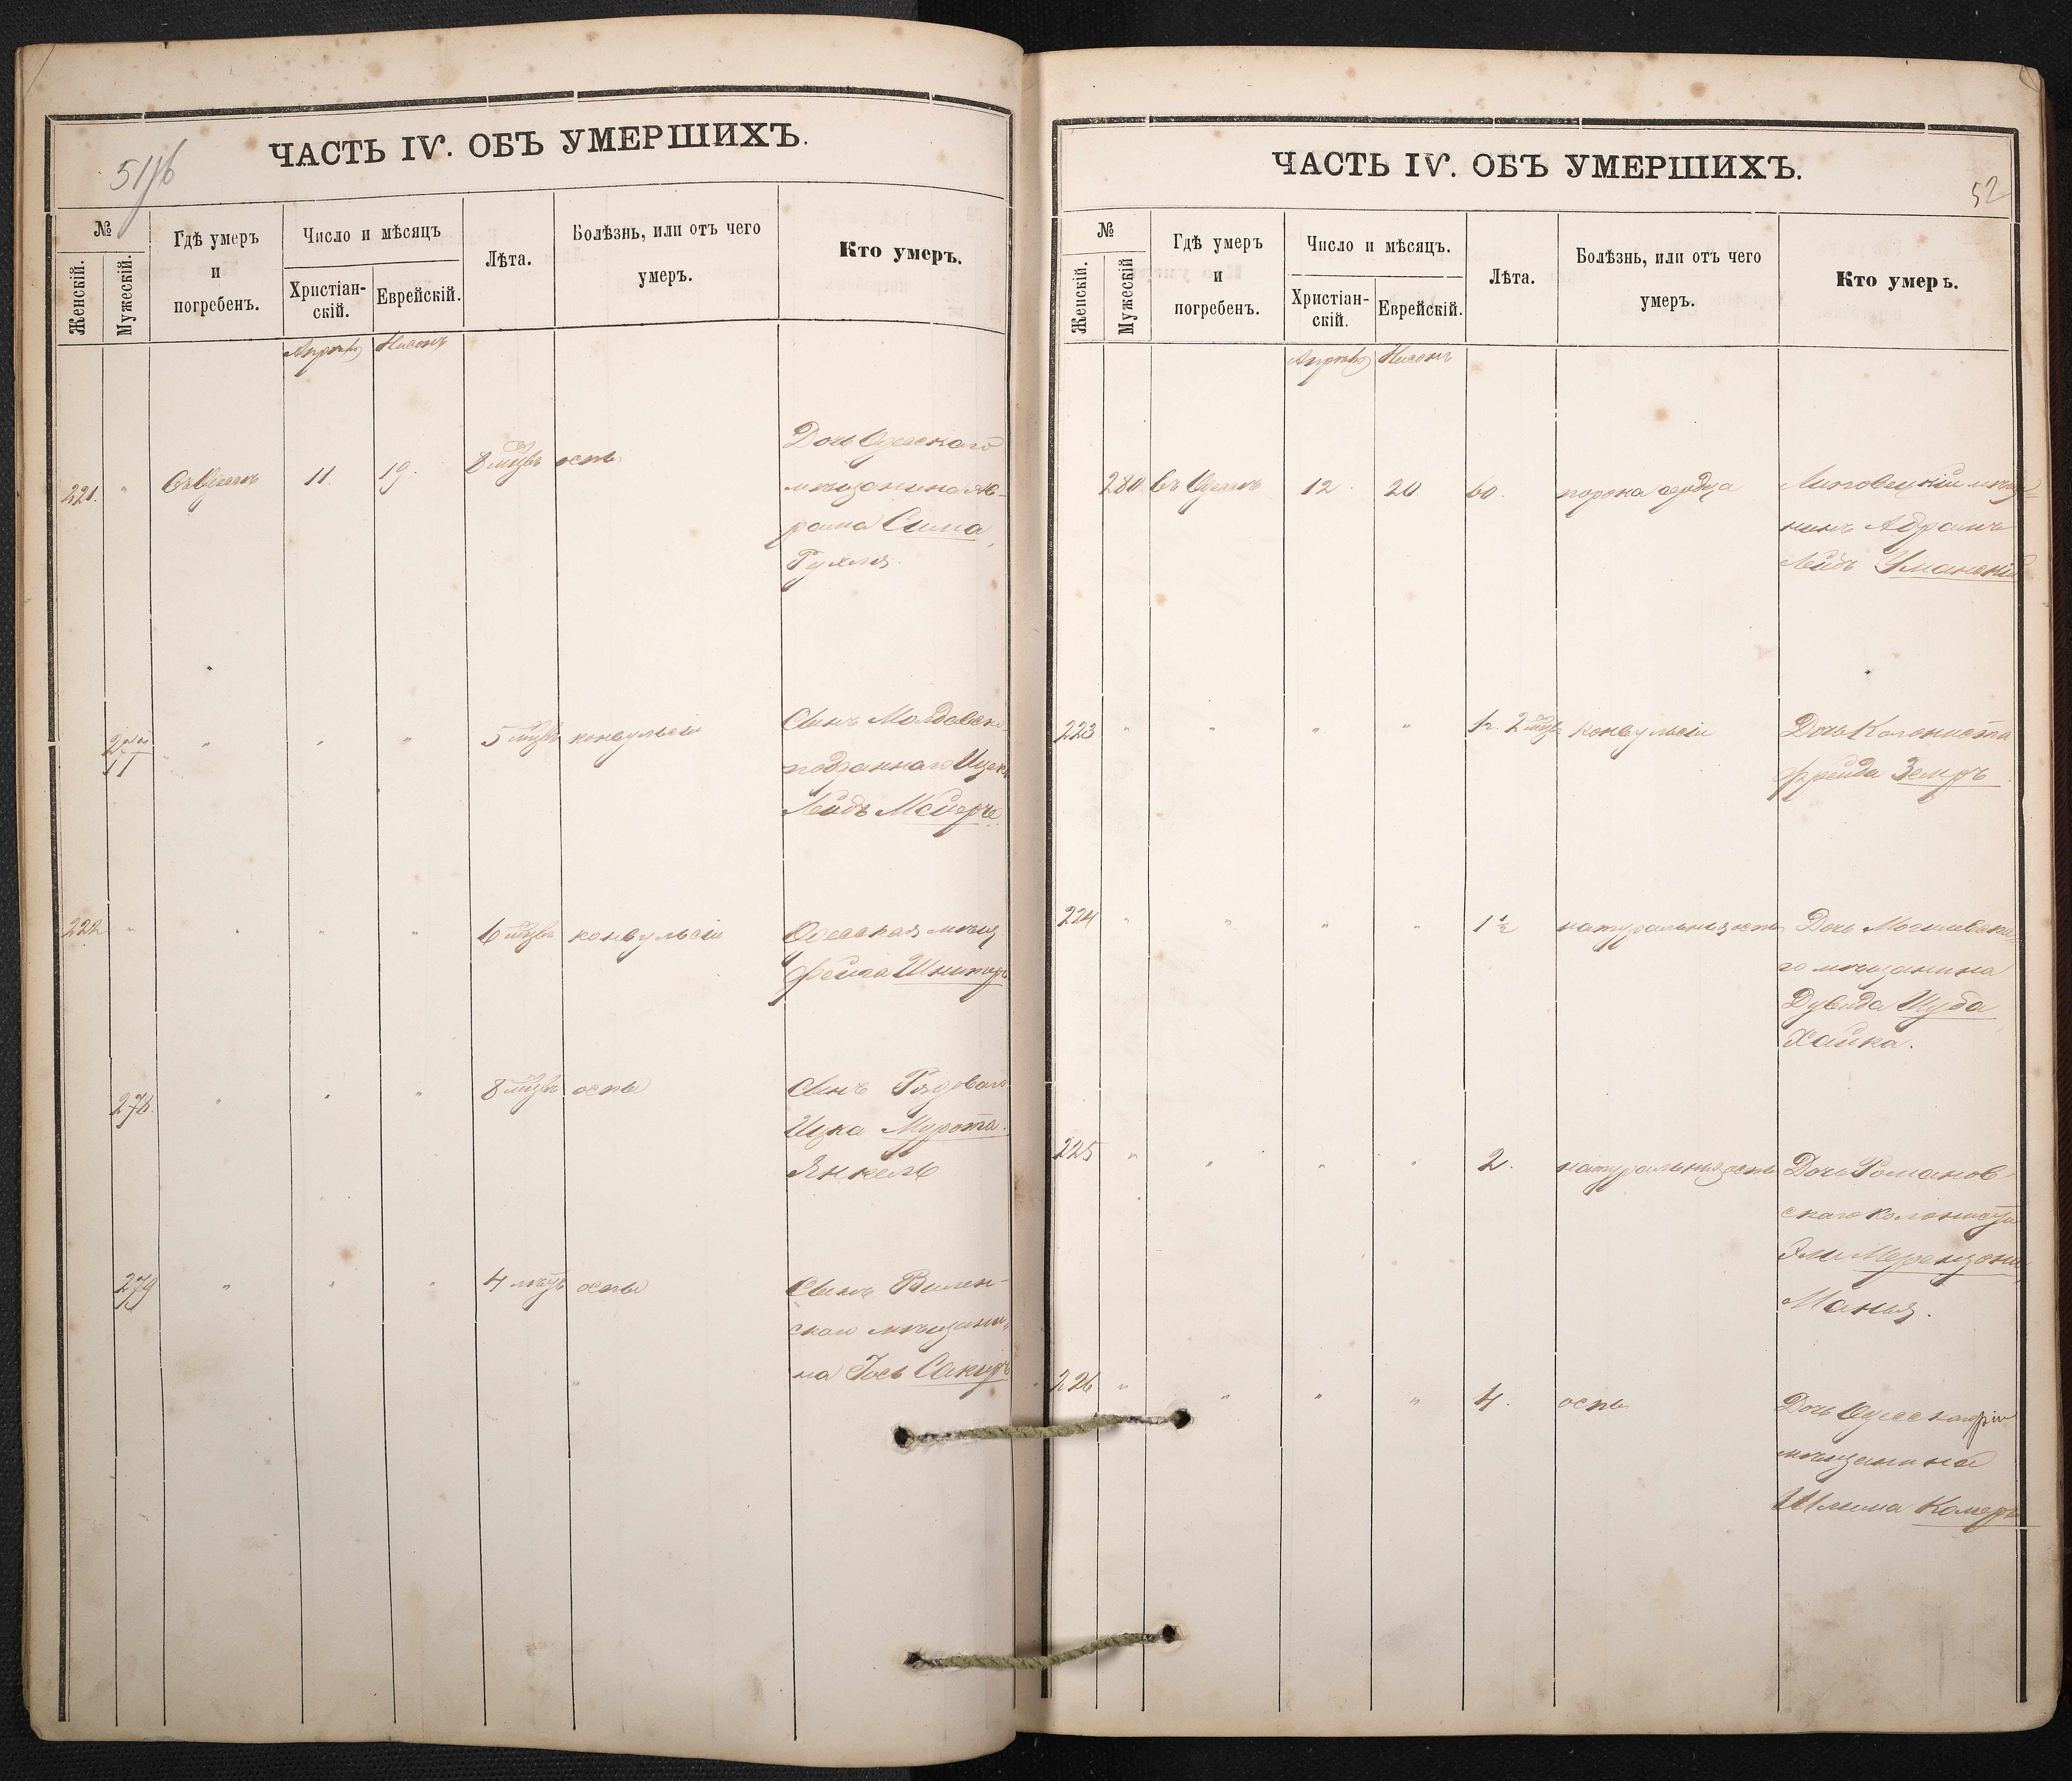 ЧАСТЬ IV. ОБЪ УМЕРШИХЪ.
51
№
Женскій.
Мужескій.
Гдѣ умеръ
и
погребенъ.
Число и мѣсяцъ
Христіан-
скій.
Еврейскій.
Лѣта.
Болѣзнь, или отъ чего
умеръ.
Кто умеръ.
Апрѣль Нисонъ
221. " въ Одессѣ 11. 19. 8 мѣсц. оспы
Дочь Одесскаго
мѣщанина Аб-
рама Сипа,
Рухля.
277 " " " 5 мѣсц. конвульсіи
Сынъ Молдавск.
подданнаго Ицекъ
Лейбъ Мейерче
222 " " " " 6 мѣсц. конвульсіи
Одесская мѣщ.
Фейга
278. " " " 8 мѣсц. оспы
Сынъ Рядового
Ицка Мурота.
Янкель
279 " " " 4 мѣсц. оспы
Сынъ Вилен-
скаго мѣщани-
на Іось
ЧАСТЬ IV. ОБЪ УМЕРШИХЪ.
52
№
Женскій.
Мужескій
Гдѣ умеръ
и
погребенъ.
Число и мѣсяцъ.
Христіан-
скій.
Еврейскій.
Лѣта.
Болѣзнь, или отъ чего
умеръ.
Кто умеръ.
Апрѣль Нисонъ
280 въ Одессѣ 12. 20 60. порока сердца
Липовецкій мѣща-
нинъ Абрамъ
Лейбъ Уманскій
223 " " " " 1 г. 2 мѣсц. конвульсіи
Дочь Колониста
Фрейда Земръ
224 " " " " 1½ натуральная оспы
Дочь Могилевска-
го мѣщанина
Дувида Шуба
Хайка.
225 " " " " 2. натуральная оспы
Дочь Романов-
скаго колониста
Эли
Манья.
226 " " " " 4. оспы
Дочь Одесскаго
мѣщанина
Шлима Комеръ